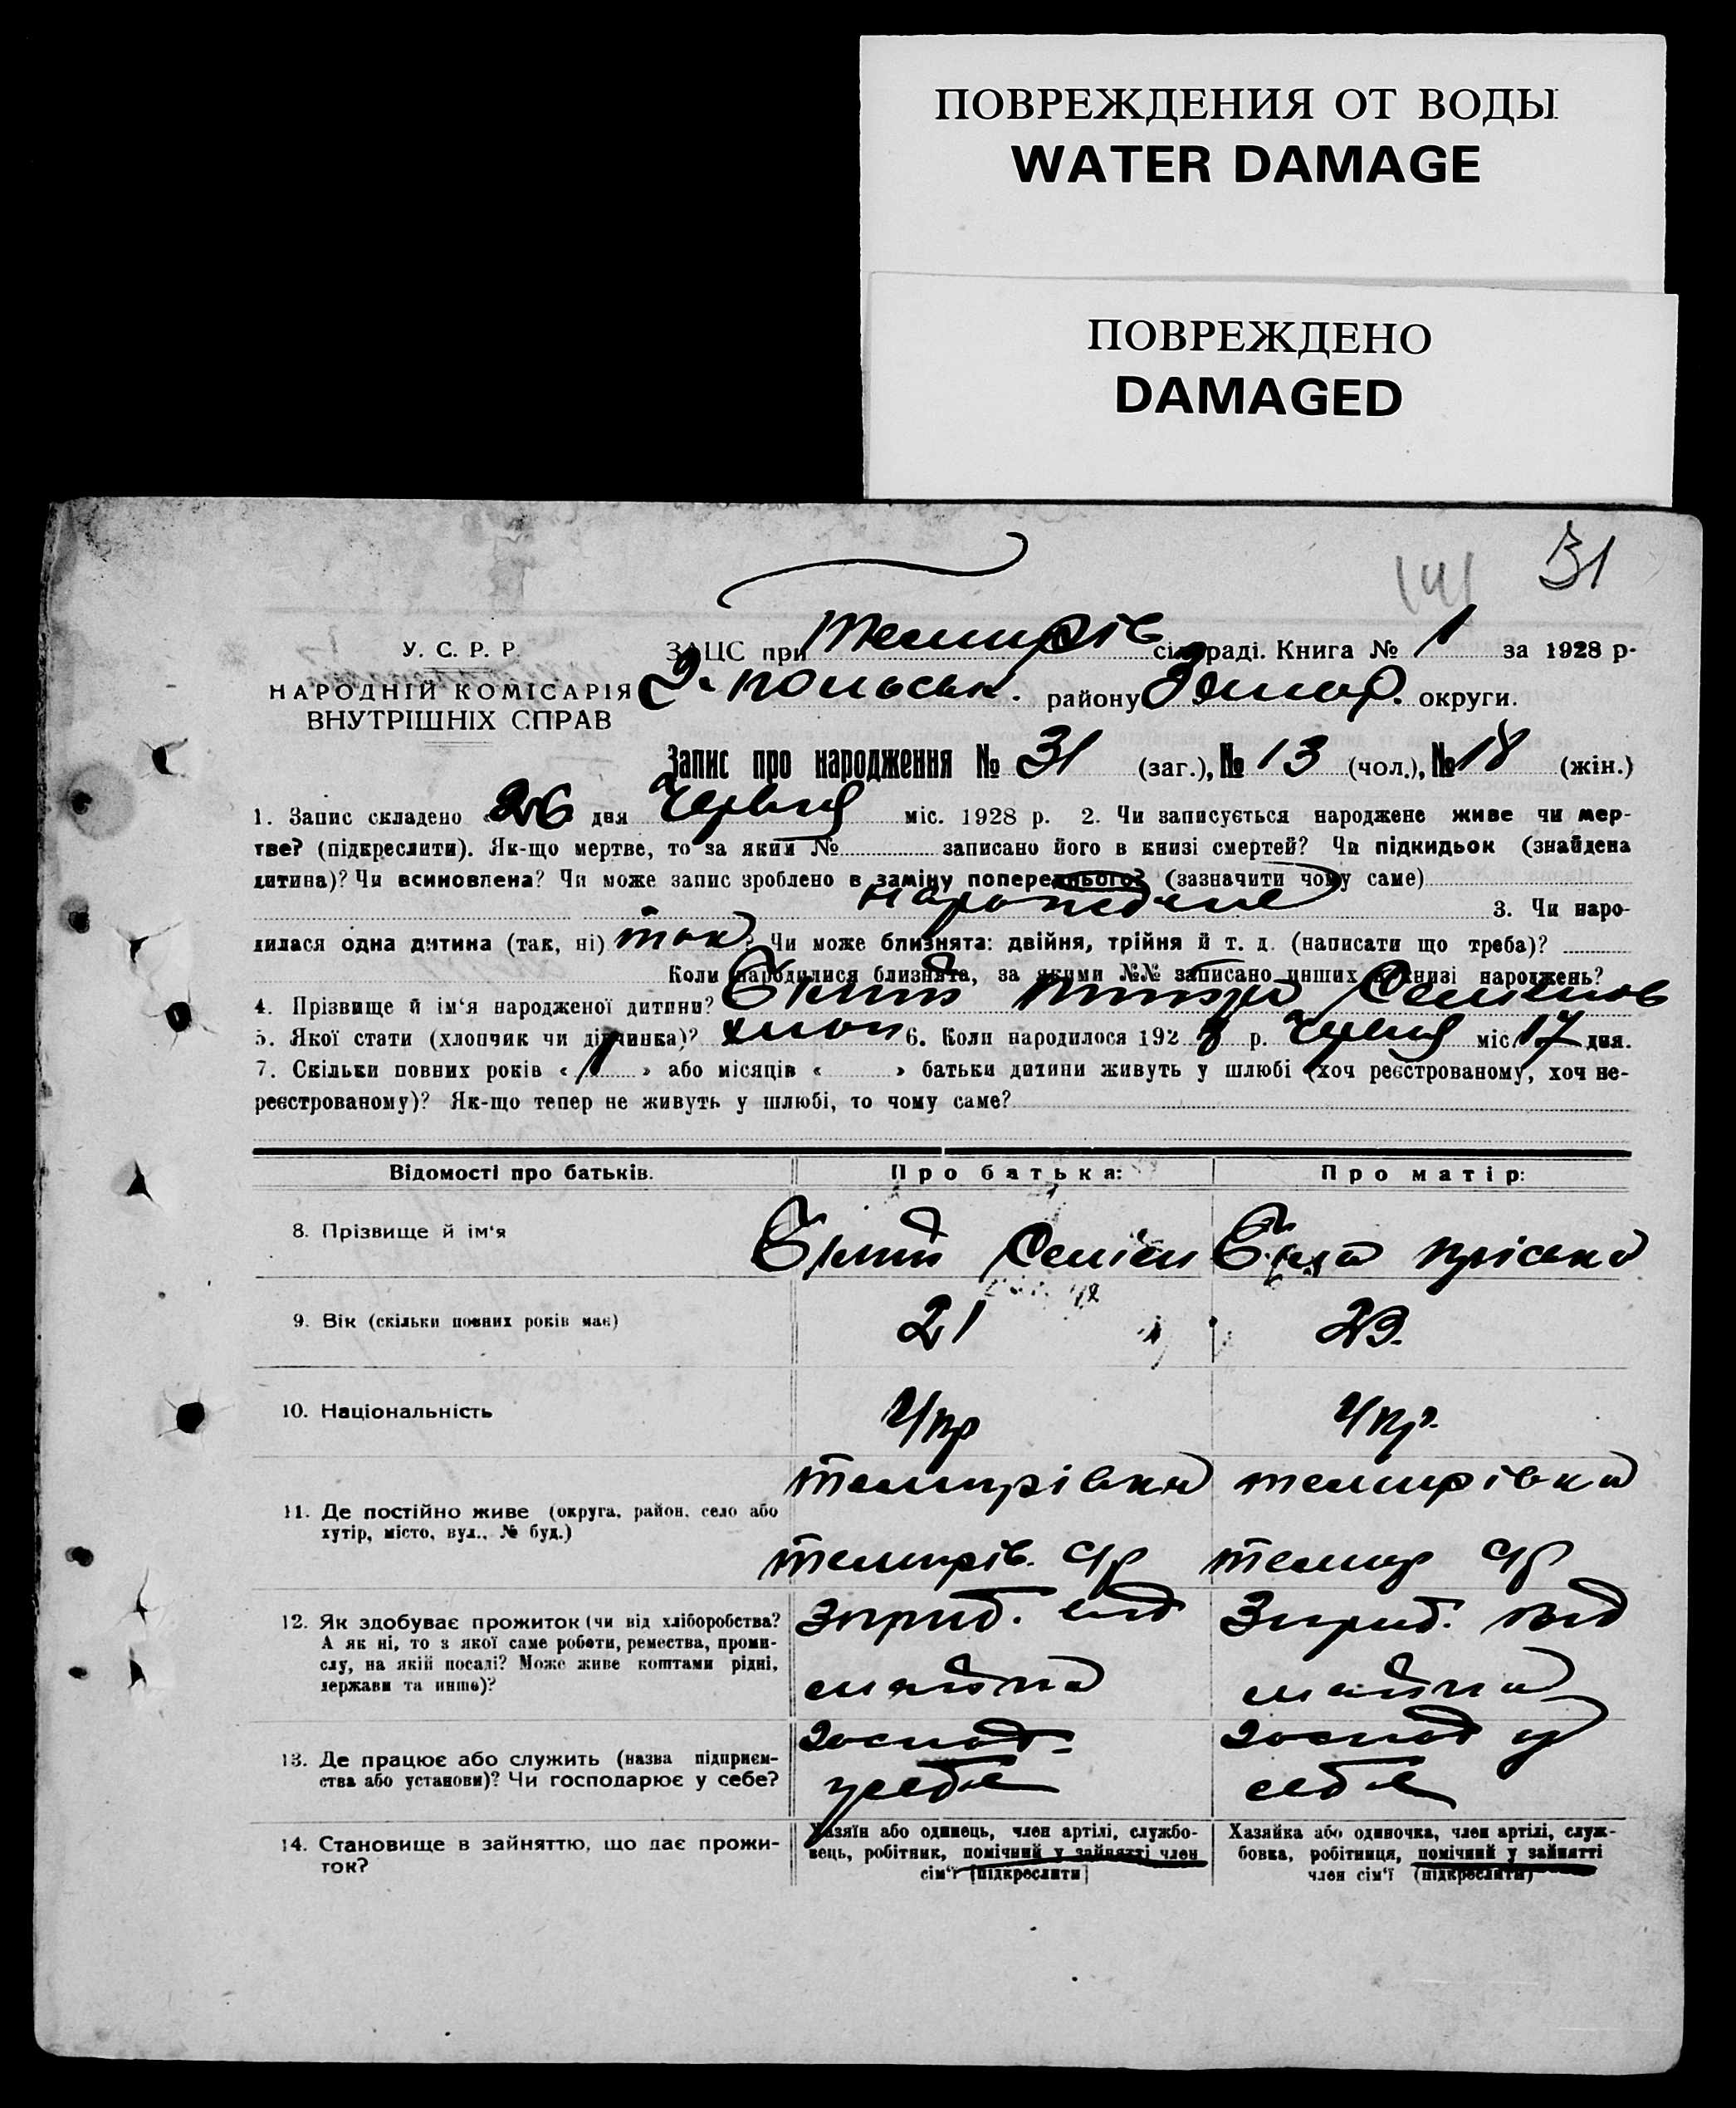 ПОВРЕЖДЕНИЯ ОТ ВОДЫ
WATER DAMAGE
ПОВРЕЖДЕНО
DAMAGED
31
У. С. Р. Р.
НАРОДНІЙ КОМІСАРІЯ
ВНУТРІШНІХ СПРАВ
ЗАЦС при Темирів сільраді. Книга № 1 за 1928 р.
району округи.
Запис про народження № 31 (заг.), № 13 (чол.), № 18 (жін.)
1. Запис складено «26 дня Червня міс. 1928 р. 2. Чи записується народжене живе чи мер-
тве? (підкреслити). Як-що мертве, то за яким № записано його в книзі смертей? Чи підкидьок (знайдена
дитина)? Чи всиновлена? Чи може запис зроблено в заміну попереднього? (зазначити чому саме)
народжене 3. Чи наро-
дилася одна дитина (так, ні) так? Чи може близнята: двійня, трійня й т. д. (написати що треба)?
Коли народилися близнята, за якими №№ записано инших в книзі народжень?
4. Прізвище й ім'я народженої дитини?
5. Якої стати (хлопчик чи дівчинка)? хлоп 6. Коли народилося 1928 р. Червня міс. 17 дня.
7. Скільки повних років « 1 » або місяців « » батьки дитини живуть у шлюбі (хоч реєстрованому, хоч не-
реєстрованому)? Як-що тепер не живуть у шлюбі, то чому саме?
Відомості про батьків. Про батька: Про матір:
8. Прізвище й ім'я Семен Пріська
9. Вік (скільки повних років має) 21 23.
10. Національність Укр Укр.
Темирівка Темирівка
11. Де постійно живе (округа, район, село або
хутір, місто, вул., № буд.)
Темирів. с/р Темир с/р
12. Як здобуває прожиток (чи від хліборобства?
А як ні, то з якої саме роботи, ремества, проми-
слу, на якій посаді? Може живе коштами рідні,
держави та инше)?
господ. господ у
13. Де працює або служить (назва підприєм-
ства або установи)? Чи господарює у себе?
у себе себе
14. Становище в зайняттю, що дає прожи-
ток?
Хазяїн або одинець, член артілі, службо-
вець, робітник, помічний у зайнятті член
сім'ї [підкреслити]
Хазяйка або одиночка, член артілі, служ-
бовка, робітниця, помічний у зайнятті
член сім'ї (підкреслити)